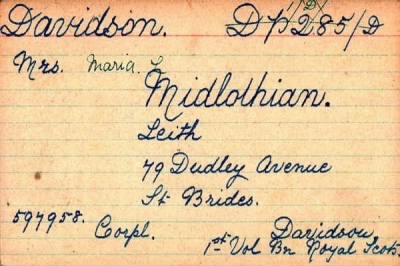 Davidson. D7/285/D
Mrs. Maria L
Midlothian.
Leith
79 Dudley Avenue
St Brides.
597958. Corpl. Davidson,
1st Vol Bn Royal Scots.